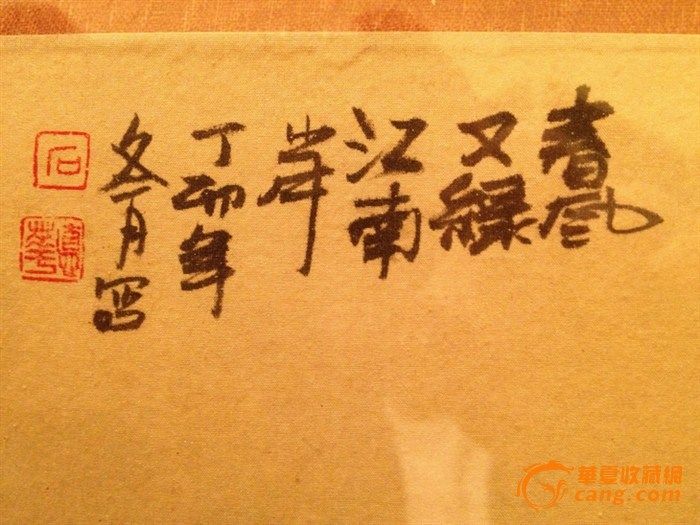 春風
又綠
江南
岸
丁卯年
冬月寫
石
華夏收藏網
cang.com